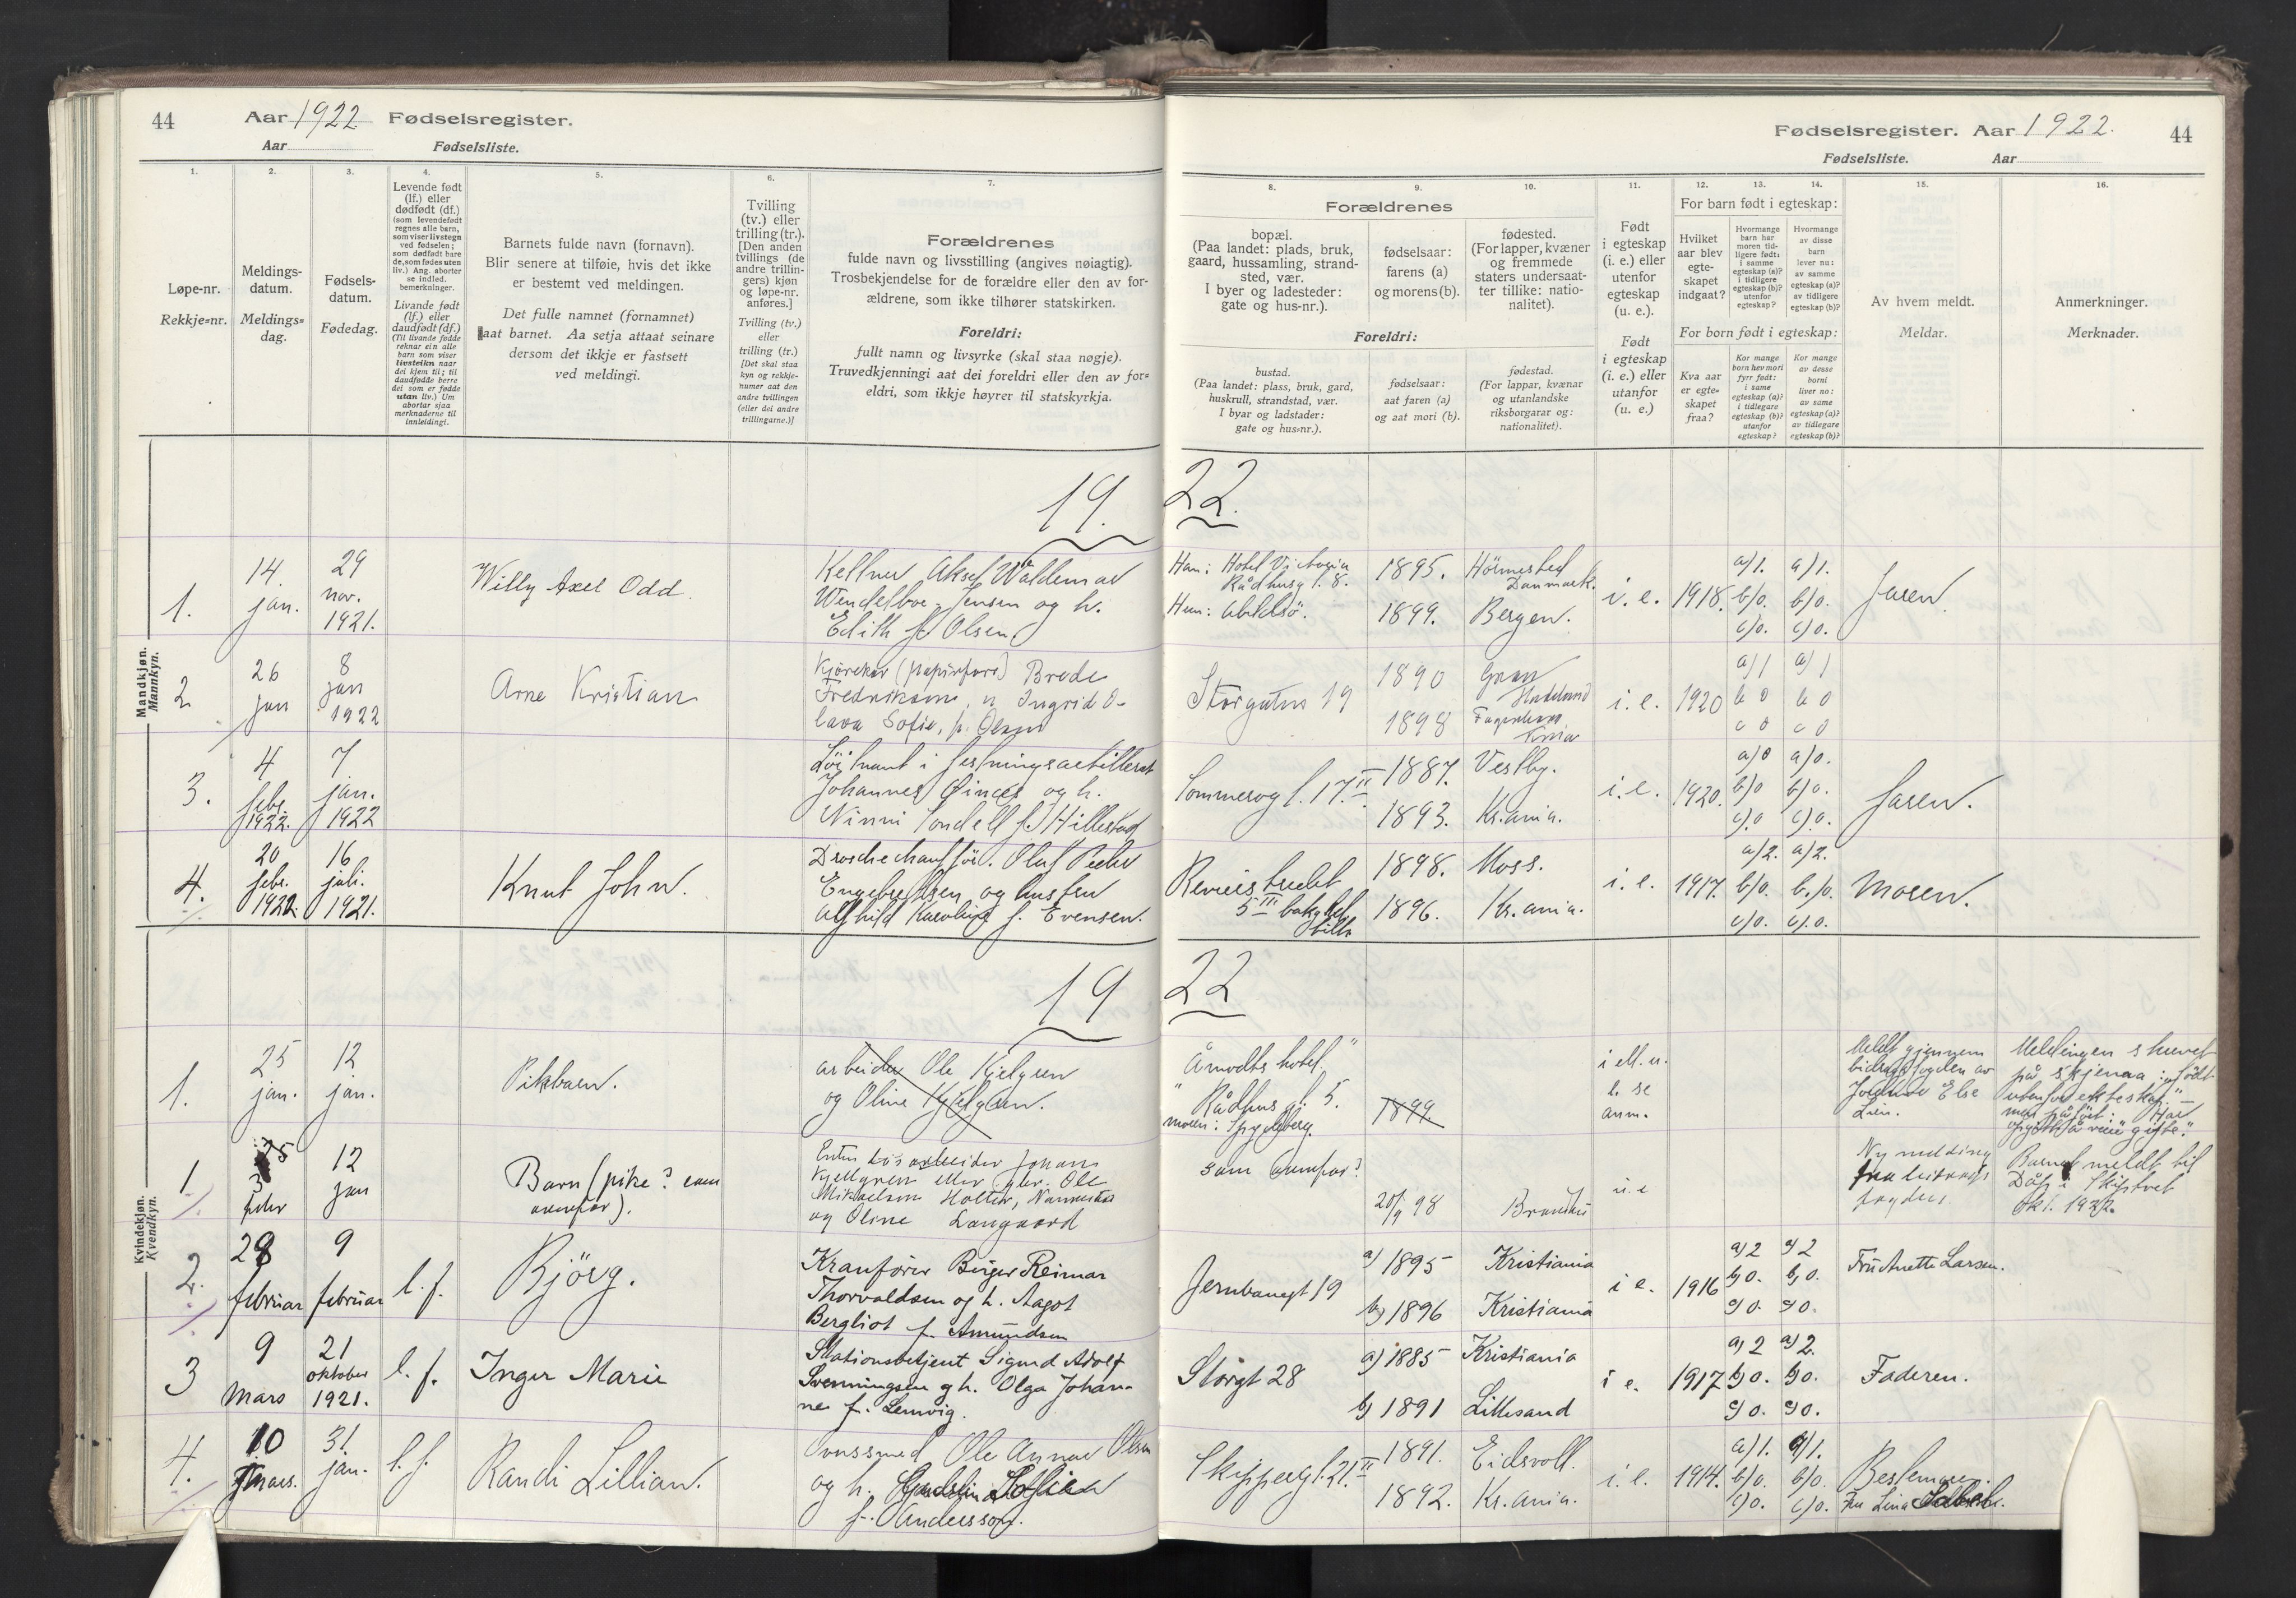 44
Aar 1922 Fødselsregister.
Aar Fødselsliste.
1.
2.
3.
4.
5.
6.
7.
Løpe-nr.
Rekkje=nr.
Meldings-
datum.
Meldings=
dag.
Fødsels-
datum.
Fødedag.
Levende født
(lf.) eller
dødfødt (df.)
(som levendefødt
regnes alle børn,
som viser livstegn
ved fødselen;
som dødfødt bare
de, som fødes uten
liv.) Ang. aborter
se indled.
bemerkninger.
Livande født
(lf.) eller
daudfødt (df.)
(Til livande fødde
reknar ein alle
born som viser
livsteikn naar
dei kjem til; til
daudfødde berre
dei som er fødde
utan liv.) Um
abortar sjaa
merknaderne til
innleidingi.
Barnets fulde navn (fornavn).
Blir senere at tilføie, hvis det ikke
er bestemt ved meldingen.
Det fulle namnet (fornamnet)
aat barnet. Aa setja attaat seinare
dersom det ikkje er fastsett
ved meldingi.
Tvilling
(tv.) eller
trilling (tr.).
[Den anden
tvillings (de
andre trillin-
gers) kjøn
og løpe-nr.
anføres.]
Tvilling (tv.)
eller
trilling (tr.)
[Det skal staa
kyn og rekkje-
numer aat den
andre tvillingen
(eller dei andre
trillingarne.)]
Forældrenes
fulde navn og livsstilling (angives nøiagtig).
Trosbekjendelse for de forældre eller den av for-
ældrene, som ikke tilhører statskirken.
Foreldri:
fullt namn og livsyrke (skal staa nøgje).
Truvedkjenningi aat dei foreldri eller den av for=
eldri, som ikkje høyrer til statskyrkja.
Mandkjøn.
Mannkyn.
19.
1.
14.
jan.
29
nov.
1921.
Willy Axel Odd.
Kellner Aksel Waldemar
Wendelboe-Jensen og h.
Edith f. Olsen
2
26
jan
8
jan
1922
Arne Kristian
Kjørekar (papirfors) Brede
Fredriksen, Ingrid O-
lava Sofie, f. Olsen
3.
4
febr.
1922.
7
jan.
1922
Løitnant i festningsartilleriet
Johannes Øines og h.
Ninni Tondell f. Hillestad
4.
20
febr.
1922.
16
juli.
1921.
Knut John.
Droschechauffør. Olaf Peder
Engebretsen og hustru
Alfhild Karoline f. Evensen.
Kvindekjøn.
Kvendkyn.
19
1.
25
jan.
12
jan.
Pikbarn.
arbeider Ole Kjelgren
og Oline Kjelgren.
1
25
3
febr
12
jan
Barn (pike? som
ovenfor).
Enten løsarbeider Johans
Kjellgren eller gbr. Ole
Mikaelsen Holter, Nannestad
og Oline Langaard
2.
28
februar
9
februar
l. f.
Bjørg.
Kranfører Birger Reimar
Thorvaldsen og h. Aagot
Bergliot f. Amundsen
3
9
Mars
21
oktober
1921.
l. f.
Inger Marie
Stationsbetjent Sigurd Adolf
Svenningsen g h. Olga Johan-
ne f. Lemvig.
4.
10
mars.
31
jan.
l. f.
Randi Lillian.
Ole Annar Olsen
og h. Sofie
f. Andersson.
Fødselsregister. Aar 1922. 44
Fødselsliste. Aar
8.
9.
10.
11.
12.
13.
14.
15.
16.
Forældrenes
bopæl.
(Paa landet: plads, bruk,
gaard, hussamling, strand-
sted, vær.
I byer og ladesteder:
gate og hus-nr.).
fødselsaar:
farens (a)
og morens (b).
fødested.
(For lapper, kvæner
og fremmede
staters undersaat-
ter tillike: natio-
nalitet).
Foreldri:
bustad.
(Paa landet: plass, bruk, gard,
huskrull, strandstad, vær.
I byar og ladstader:
gate og hus=nr.).
fødselsaar:
aat faren (a)
og aat mori (b).
fødestad.
(For lappar, kvænar
og utanlandske
riksborgarar og:
nationalitet).
Født
i egteskap
(i. e.) eller
utenfor
egteskap
(u. e.).
Født
i egteskap
(i. e.) eller
utanfor
(u. e.)
For barn født i egteskap:
Hvilket
aar blev
egte-
skapet
indgaat?
Hvormange
barn har
moren tid-
ligere født:
i samme
egteskap (a)?
i tidligere
egteskap (b)?
utenfor
egteskap?
Hvormange
av disse
barn
lever nu:
av samme
egteskap (a)?
av tidligere
egteskap (b)?
For born født i egteskap:
Kva aar
er egte-
skapet
fraa?
Kor mange
born hev mori
fyrr født:
i same
egteskap (a)?
i tidlegare
egteskap (b)?
utanfor
egteskap?
Kor mange
av desse
borni
liver no:
av same
egteskap (a)?
av tidlegare
egteskap (b)?
Av hvem meldt.
Meldar.
Anmerkninger.
Merknader.
22.
Han: Hotel Victoria
Rådhusg 8.
Hun: Abildsø.
1895.
1899.
Hörmested
Danmark.
Bergen.
i. e.
1918.
a/1.
b/0.
c/0.
a/1.
b/0.
c/0.
Faren
Storgaten 19
1890
1898
Gran
Hadeland
i. e.
1920
a/1
b 0
c 0
a/1
b 0
c 0
Sommerog 17 II
1887.
1893.
Vestby.
Kr.ania.
i. e.
1920.
a/0
b/0
c/0
a/0.
b/0.
c/0.
Faren.
5 III
1898.
1896.
Moss.
Kr.ania.
i. e.
1917.
a/2.
b/0.
c/0.
a/2.
b/0.
c/0.
Moren.
22
Åmodts hotel,
Rådhusg. 5.
moren: Spydeberg.
1899
i ell. u.
e. se
anm.
Meldt gjennem
bidragsfogden av
Jordmor Else
Lien.
Meldingen skrevet
på skjema: født
utenfor ekteskap" –
men påført: "Har
opgitt å være gifte".
som ovenfor?
20/9 98
Brandbu
u. e
Ny melding
fra bidrags
fogden
Barnet meldt til
Dåp i Skiptvet
okt. 1922.
Jernbanegt 19
a) 1895
b) 1896
Kristiania
Kristiania
i e.
1916
a) 2
b) 0.
c) 0.
a) 2
b) 0.
c) 0.
Frü Anette Larsen.
Storgt 28
a) 1885
b) 1891
Kristiania
Lillesand
i e.
1917
a) 2
b) 0.
c) 0.
a) 2.
b) 0.
c) 0.
Faderen.
Skipperg. 21. II
1891.
1892.
Eidsvoll.
Kr.ania.
i. e.
1914.
a/1.
b/0.
c/0.
a/1.
b/0.
c/0.
Bestemor.
Fru Lina